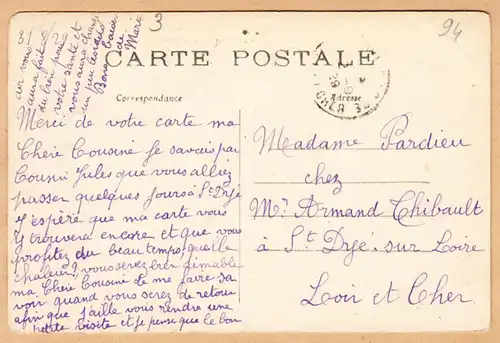 94
3
CARTE POSTALE
Correspondance
Adresse
Merci de votre carte ma
Chère Cousine Je savais par
Cousin Jules que vous alliez
passer quelques jours à St Dyé
J'espère que ma carte vous
y trouvera encore et que vous
profitez du beau temps, quelle
chaleur! vous serez bien aimable
ma Chère Cousine de me faire sa
voir quand vous serez de retour
afin que j'aille vous rendre une
petite visite et je pense que le bon
air vous
aura fait
du bien pour
votre santé et
vous aura changé
un peu les idées
Bons baisers
de
Marie
Madame Pardieu
chez
Mr Armand Thibault
à St Dyé sur Loire
Loir et Cher